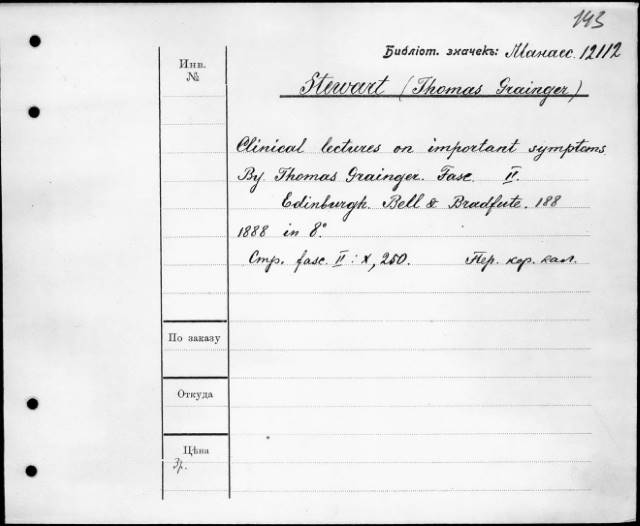 143
Библіот. значекъ: Манасс. 12112
Инв.
№
Stewart (Thomas Grainger)
Clinical lectures on important symptoms.
By Thomas Grainger. Fasc. II.
Edinburgh. Bell & Bradfute. 188
1888 in 8°.
Стр. fasc. II : X, 250. Пер. кор. кал.
По заказу
Откуда
Цѣна
3р.